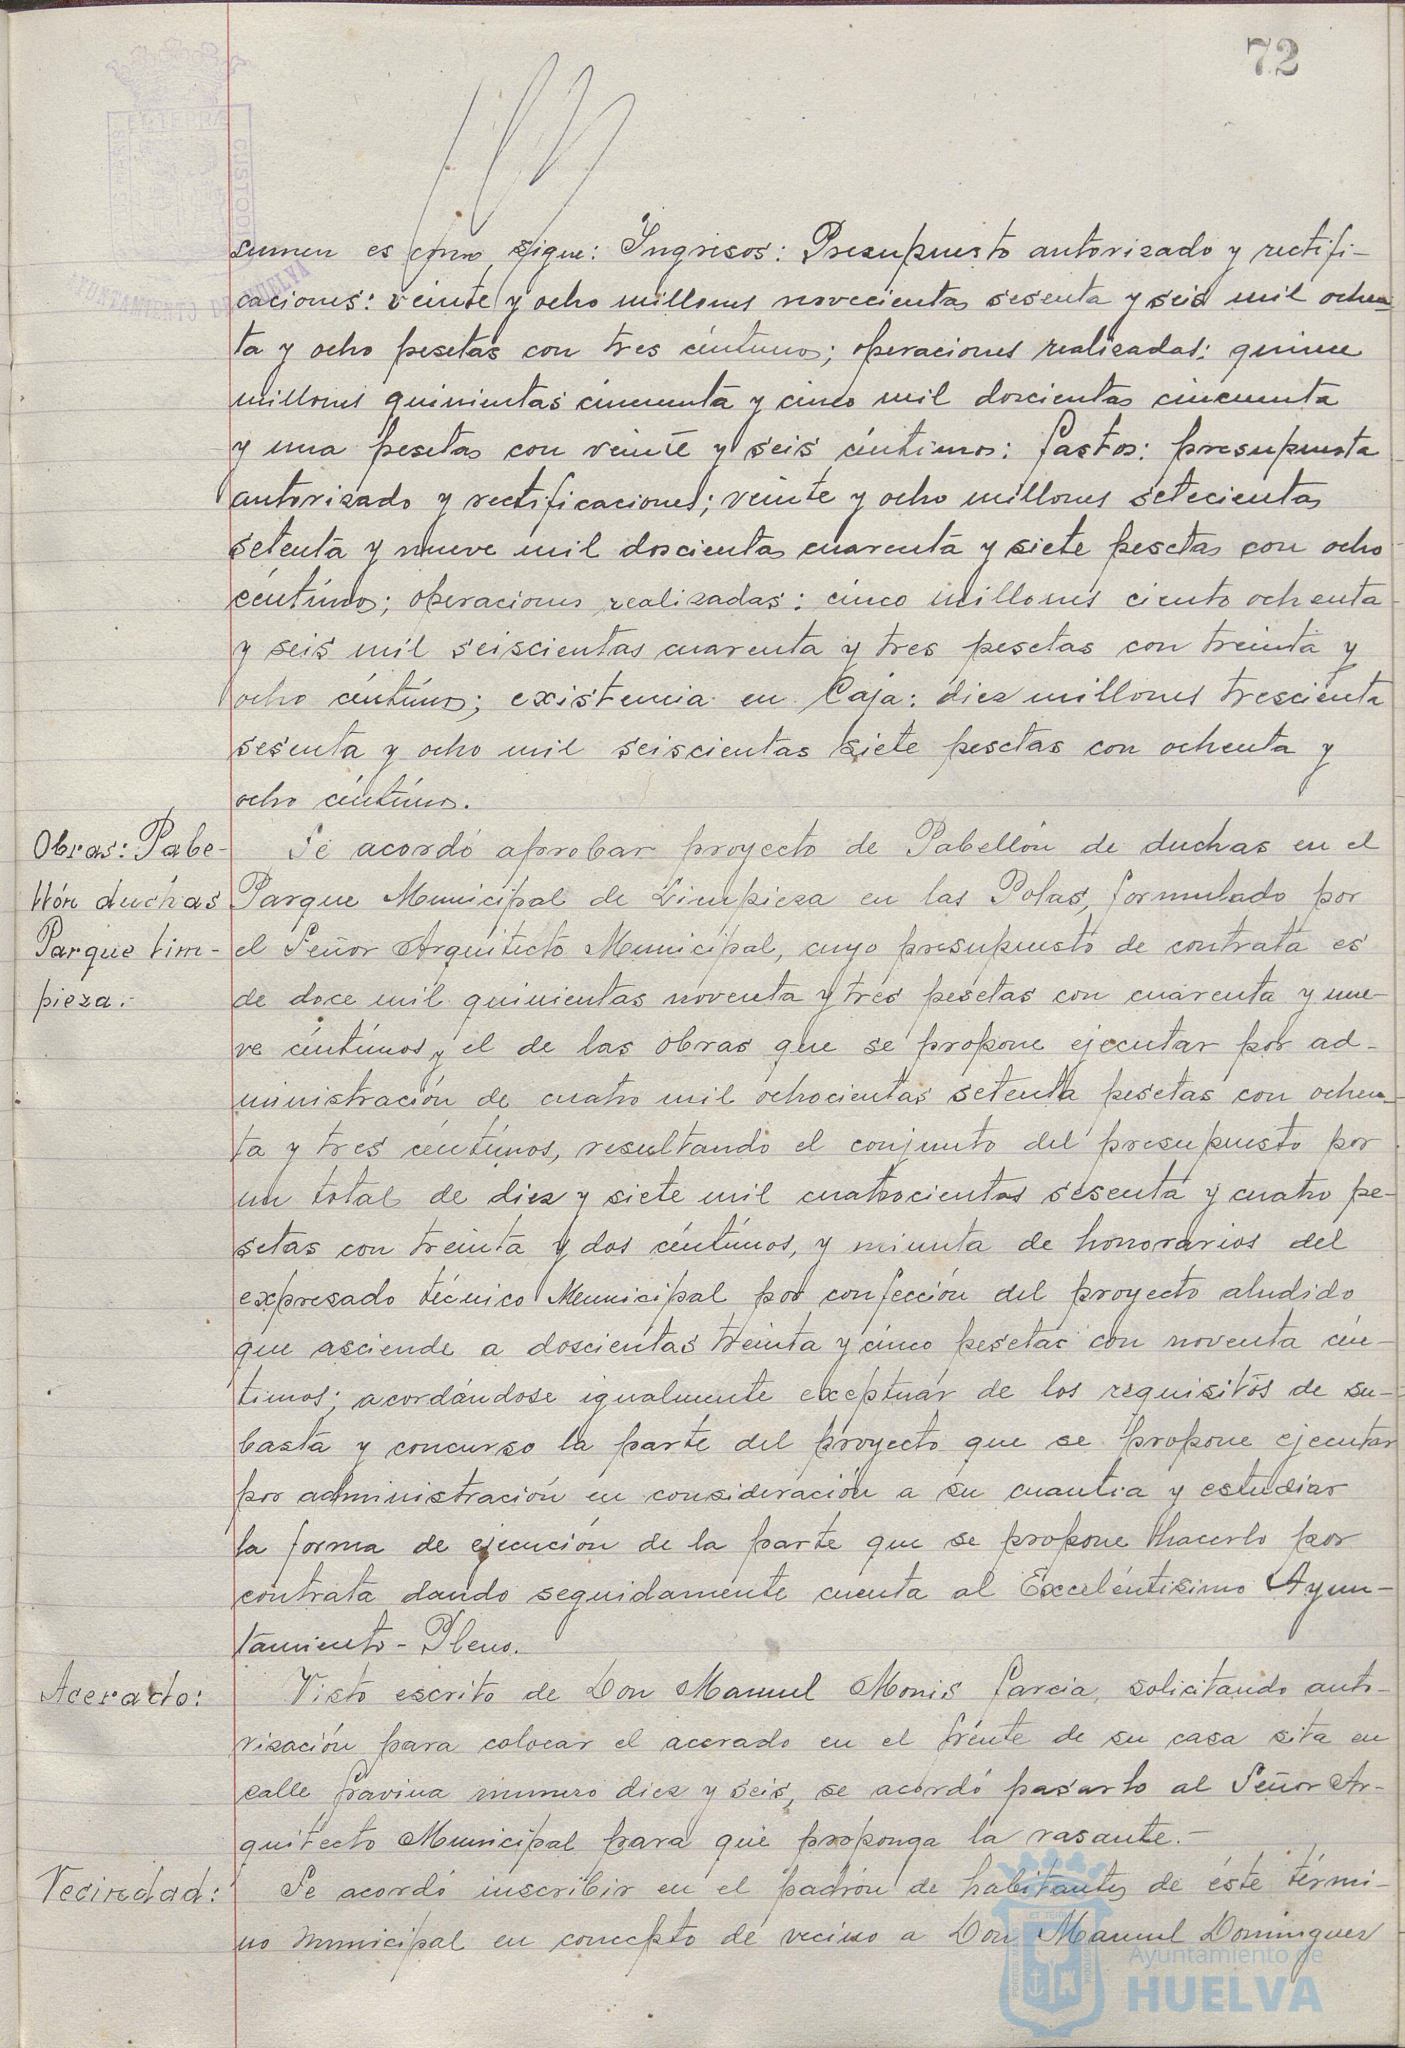 72
sumen es como sigue: Ingresos: Presupuesto autorizado y rectifi-
caciones: veinte y ocho millones novecientas sesenta y seis mil ochen-
ta y ocho pesetas con tres céntimos; operaciones realizadas: quince
millones quinientas cincuenta y cinco mil doscientas cincuenta
y una pesetas con veinte y seis céntimos: Gastos: presupuesto
autorizado y rectificaciones; veinte y ocho millones setecientas
setenta y nueve mil doscientas cuarenta y siete pesetas con ocho
céntimos; operaciones realizadas: cinco millones ciento ochenta
y seis mil seiscientas cuarenta y tres pesetas con treinta y
ocho céntimos; existencia en Caja: diez millones trescienta
sesenta y ocho mil seiscientas siete pesetas con ochenta y
ocho céntimos.
Obras: Pabe-
llón duchas
Parque lim-
pieza.-
Se acordó aprobar proyecto de Pabellón de duchas en el
Parque Municipal de Limpieza en las Polas, formulado por
el Señor Arquitecto Municipal, cuyo presupuesto de contrata es
de doce mil quinientas noventa y tres pesetas con cuarenta y nue-
ve céntimos y el de las obras que se propone ejecutar por ad-
ministración de cuatro mil ochocientas setenta pesetas con ochen-
ta y tres céntimos, resultando el conjunto del presupuesto por
un total de diez y siete mil cuatrocientas sesenta y cuatro pe-
setas con treinta y dos céntimos, y minuta de honorarios del
expresado técnico Municipal por confección del proyecto aludido
que asciende a doscientas treinta y cinco pesetas con noventa cén-
timos; acordándose igualmente exceptuar de los requisitos de su-
basta y concurso la parte del proyecto que se propone ejecutar
por administración en consideración a su cuantia y estudiar
la forma de ejecución de la parte que se propone hacerlo por
contrata dando seguidamente cuenta al Excelentísimo Ayun-
tamiento-Pleno.
Acerado:
Visto escrito de Don Manuel Monis Garcia, solicitando auto-
rización para colocar el acerado en el frente de su casa sita en
calle Gravina numero diez y seis, se acordó pasarlo al Señor Ar-
quitecto Municipal para que proponga la rasante.-
Vecindad:
Se acordó inscribir en el padrón de habitantes de éste térmi-
no municipal en concepto de vecino a Don Manuel Dominguez
Ayuntamiento de
HUELVA
AYUNTAMIENTO DE HUELVA